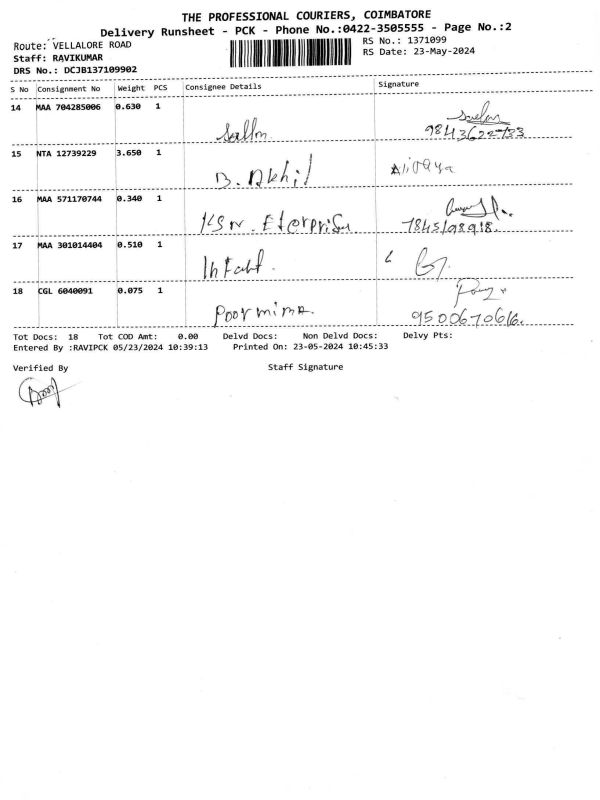 THE PROFESSIONAL COURIERS, COIMBATORE
Delivery Runsheet - PCK - Phone No.:0422-3505555 - Page No.:2
Route: VELLALORE ROAD RS No.: 1371099
Staff: RAVIKUMAR RS Date: 23-May-2024
DRS No.: DCJB137109902
S No Consignment No Weight PCS Consignee Details Signature
14 MAA 704285006 0.630 1
15 NTA 12739229 3.650 1
B. Akhil
16 MAA 571170744 0.340 1
KSN. Eterprise 7845198918.
17 MAA 301014404 0.510 1
18 CGL 6040091 0.075 1
Poormima. 9500670616.
Tot Docs: 18 Tot COD Amt: 0.00 Delvd Docs: Non Delvd Docs: Delvy Pts:
Entered By :RAVIPCK 05/23/2024 10:39:13 Printed On: 23-05-2024 10:45:33
Verified By Staff Signature